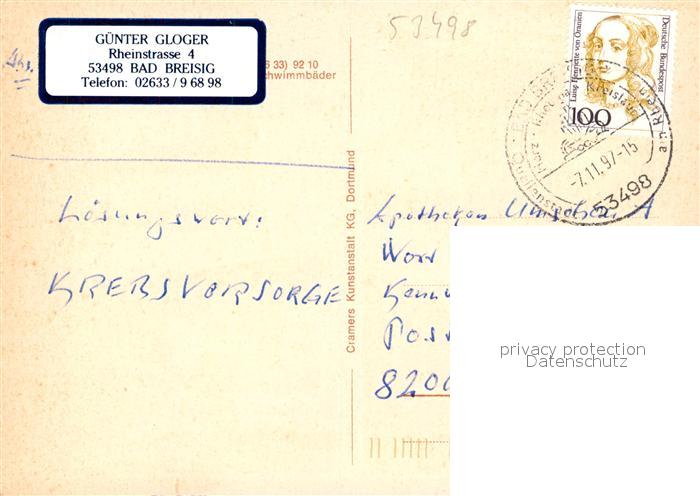 53498
GÜNTER GLOGER
Rheinstrasse 4
53498 BAD BREISIG
Telefon: 02633/9 68 98
Abs.
6 33) 92 10
chwimmbäder
Deutsche Bundespost
Luise Henriette von Oranien
100
BAD BREISIG
am Rhein
-7.11.97-15
53498
Cramers Kunstanstalt KG, Dortmund
Lösungswort:
KREBSVORSORGE
Apotheken Umschau A
Wort
Kennw
Post
8200
privacy protection
Datenschutz